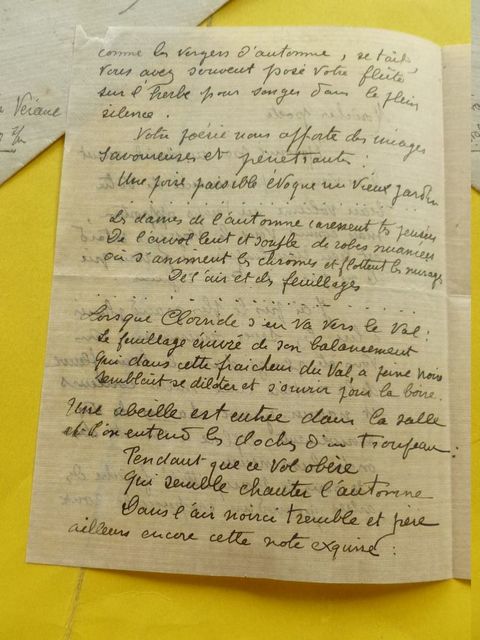 Verane
comme les vergers d'automne, se taît,
vous avez souvent posé votre flûte
sur l'herbe pour songer dans le plein
silence.
Votre poésie nous apporte des images
savoureuses et pénétrantes :
Une poire paisible évoque un vieux jardin
Les dames de l'automne caressent tes pensées
De l'envol lent et souple de robes nuancées
où s'animent les chromes et flottent les nuages
De l'air et des feuillages
Lorsque Clorinde s'en va vers le val.
Le feuillage enivré de son balancement
Qui dans cette fraîcheur du Val à peine noir
semblait se dilater et s'ouvrir pour la boire.
Une abeille est entrée dans la salle
et l'on entend les cloches d'un troupeau :
Pendant que ce vol obère
Qui semble chanter l'automne
Dans l'air noirci tremble et pèse
ailleurs encore cette note exquise :